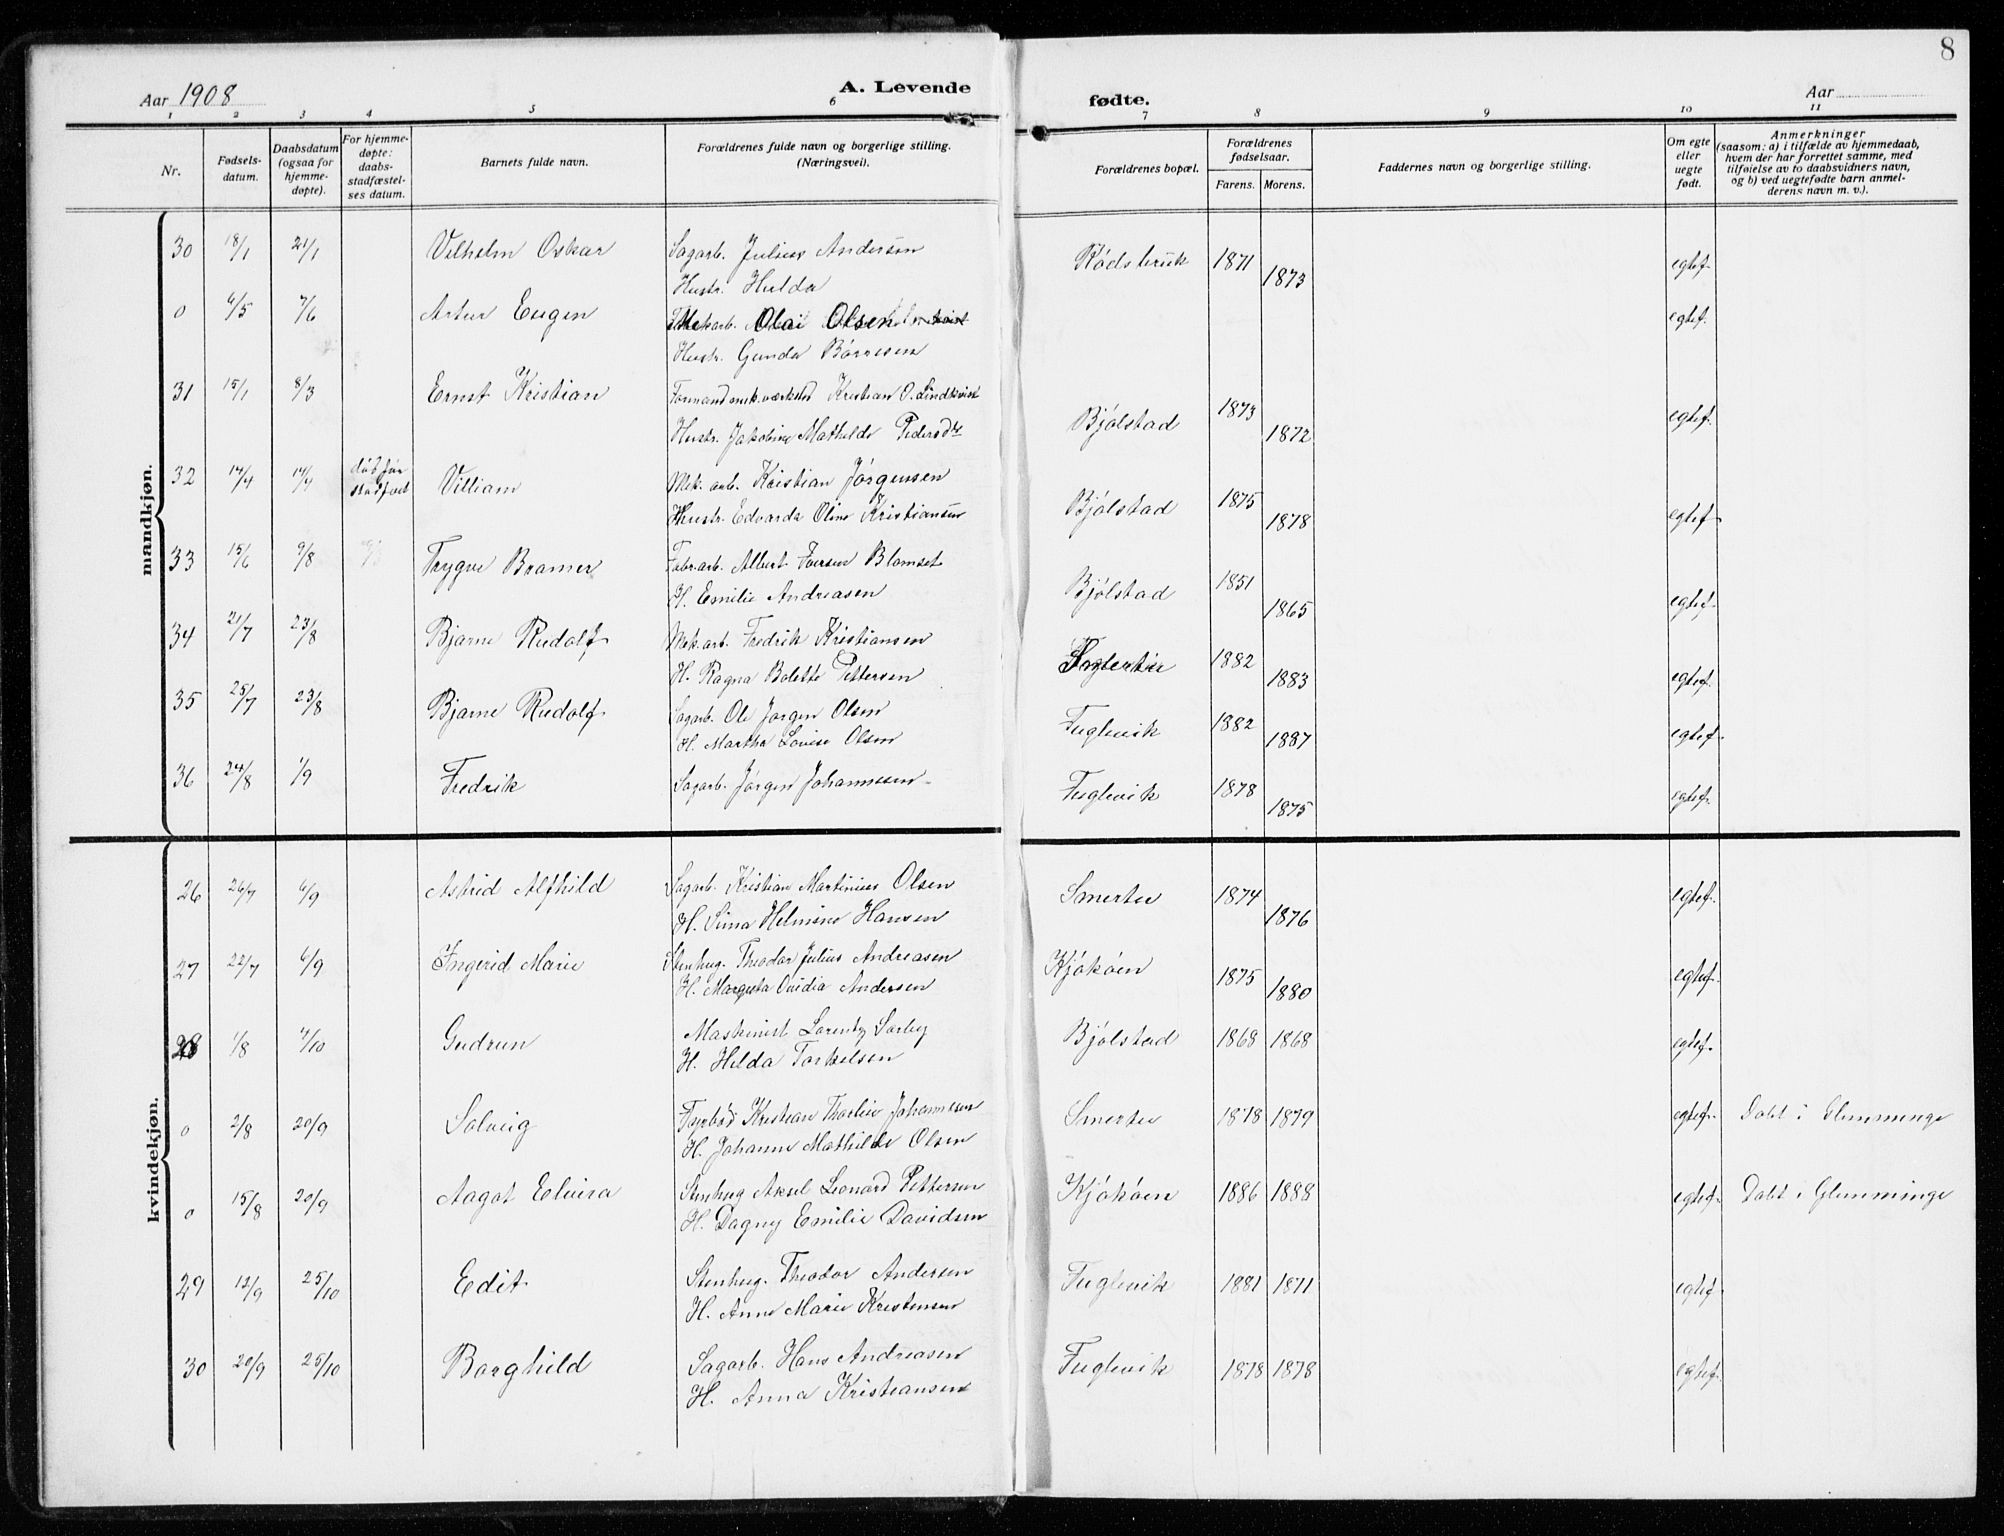 8
Aar 1908 A. Levende fødte. Aar
1 2 3 4 5 6 7 8 9 10 11
Nr. Fødsels-datum. Daabsdatum (ogsaa for hjemme-døpte). For hjemme-døpte: daabs-stadfæstel-ses datum. Barnets fulde navn. Forældrenes fulde navn og borgerlige stilling. (Næringsvei). Forældrenes bopæl. Forældrenes fødselsaar. Farens. Morens. Faddernes navn og borgerlige stilling. Om egte eller uegte født. Anmerkninger (saasom: a) i tilfælde av hjemmedaab, hvem der har forrettet samme, med tilføielse av to daabsvidners navn, og b) ved uegtefødte barn anmel-derens navn m. v.).
mandkjøn.
30 18/1 21/1 Vilhelm Oskar Sagarb. Julius Andersen Rødsbruk 1871 1873 egtef.
Hustr. Hulda
0 6/5 7/6 Artur Eugen Mekarb. Olai Olsen egtef.
Hustr. Gunda Børresen
31 15/1 8/3 Ernst Kristian Formand mek. værksted Kristian O. Lindkvist Bjølstad 1873 1872 egtef.
Hustr. Jakobine Mathilde Pedersdtr
32 14/4 14/4 død før stadfæst Villiam Mek. arb. Kristian Jørgensen Bjølstad 1875 1878 egtef.
Hustr. Edvarda Oline Kristiansen
33 15/6 9/8 Trygve Bramer Fabr.arb. Albert Iversen Blomset Bjølstad 1851 1865 egtef.
H. Emilie Andreasen
34 21/7 23/8 Bjarne Rudolf Mek. arb. Fredrik Kristiansen 1882 1883 egtef.
H. Ragna Bolette Pettersen
35 25/7 23/8 Bjarne Rudolf Sagarb. Ole Jørgen Olsen Fuglevik 1882 1887 egtef.
H. Martha Lovise Olsen
36 24/8 1/9 Fredrik Sagarb. Jørgen Johannesen Fuglevik 1878 1875 egtef.
kvindekjøn.
26 26/7 6/9 Astrid Alfhild Sagarb. Kristian Martinius Olsen Smertu 1874 1876 egtef.
H. Sima Helmine Hansen
27 22/7 6/9 Ingerid Marie Stenhug. Theodor Julius Andreasen Kjøkøen 1875 1880 egtef.
H. Margreta Ovidia Andersen
28 1/8 4/10 Gudrun Maskinist Lorentz Sørby Bjølstad 1868 1868 egtef.
H. Hilda Torkelsen
0 2/8 20/9 Solveig Fyrbød. Kristian Thorleiv Johannesen Smertu 1878 1879 egtef. Døbt i Glemminge
H. Johanne Mathilde Olsen
0 15/8 20/9 Aagot Elvira Stenhug Aksel Leonard Pettersen Kjøkøen 1886 1888 egtef. Døbt i Glemminge
H. Dagny Emilie Davidsen
29 12/9 25/10 Edit Stenhug. Theodor Andersen Fuglevik 1881 1871 egtef.
H. Anne Marie Kristensen
30 20/9 25/10 Borghild Sagarb. Hans Andreasen Fuglevik 1878 1878 egtef.
H. Anna Kristiansen